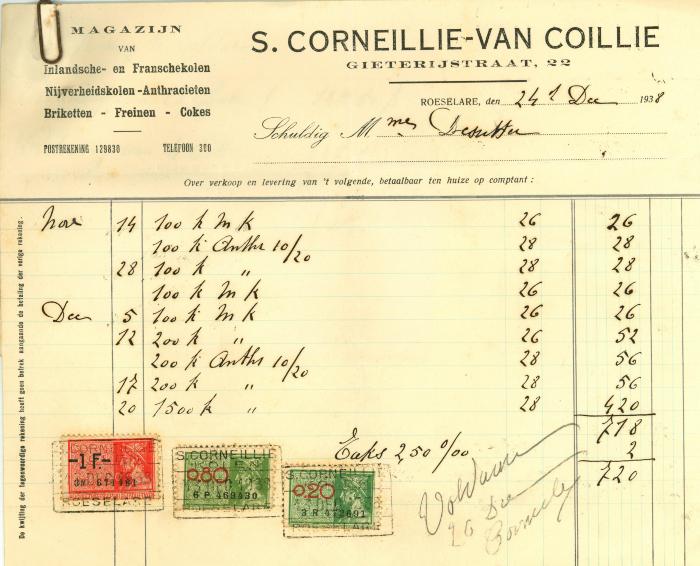 MAGAZIJN
VAN
Inlandsche- en Franschekolen
Nijverheidskolen-Anthracieten
Briketten - Freinen - Cokes
POSTREKENING 129830 TELEFOON 300
S. CORNEILLIE-VAN COILLIE
GIETERIJSTRAAT, 22
ROESELARE, den 24 Dec 1938
Schuldig Mmes
Over verkoop en levering van 't volgende, betaalbaar ten huize op comptant :
De kwijting der tegenwoordige rekening heeft geen betrek aangaande de betaling der vorige rekening.
Nove 14 100 k M K 26 26
100 k Anthr 10/20 28 28
28 100 k " 28 28
100 k M K 26 26
Dec 5 100 k M K 26 26
12 200 k " 26 52
200 k Anthr 10/20 28 56
17 200 k " 28 56
20 1500 k " 28 420
718
Taks 2 50 0/00 2
720
Voldaan
26 Dec
-1 F.-
ROESELARE
S. CORNEILLIE
0,80
6 P 469430
ROESELARE
S. CORNEILLIE
0,20
ROESELARE